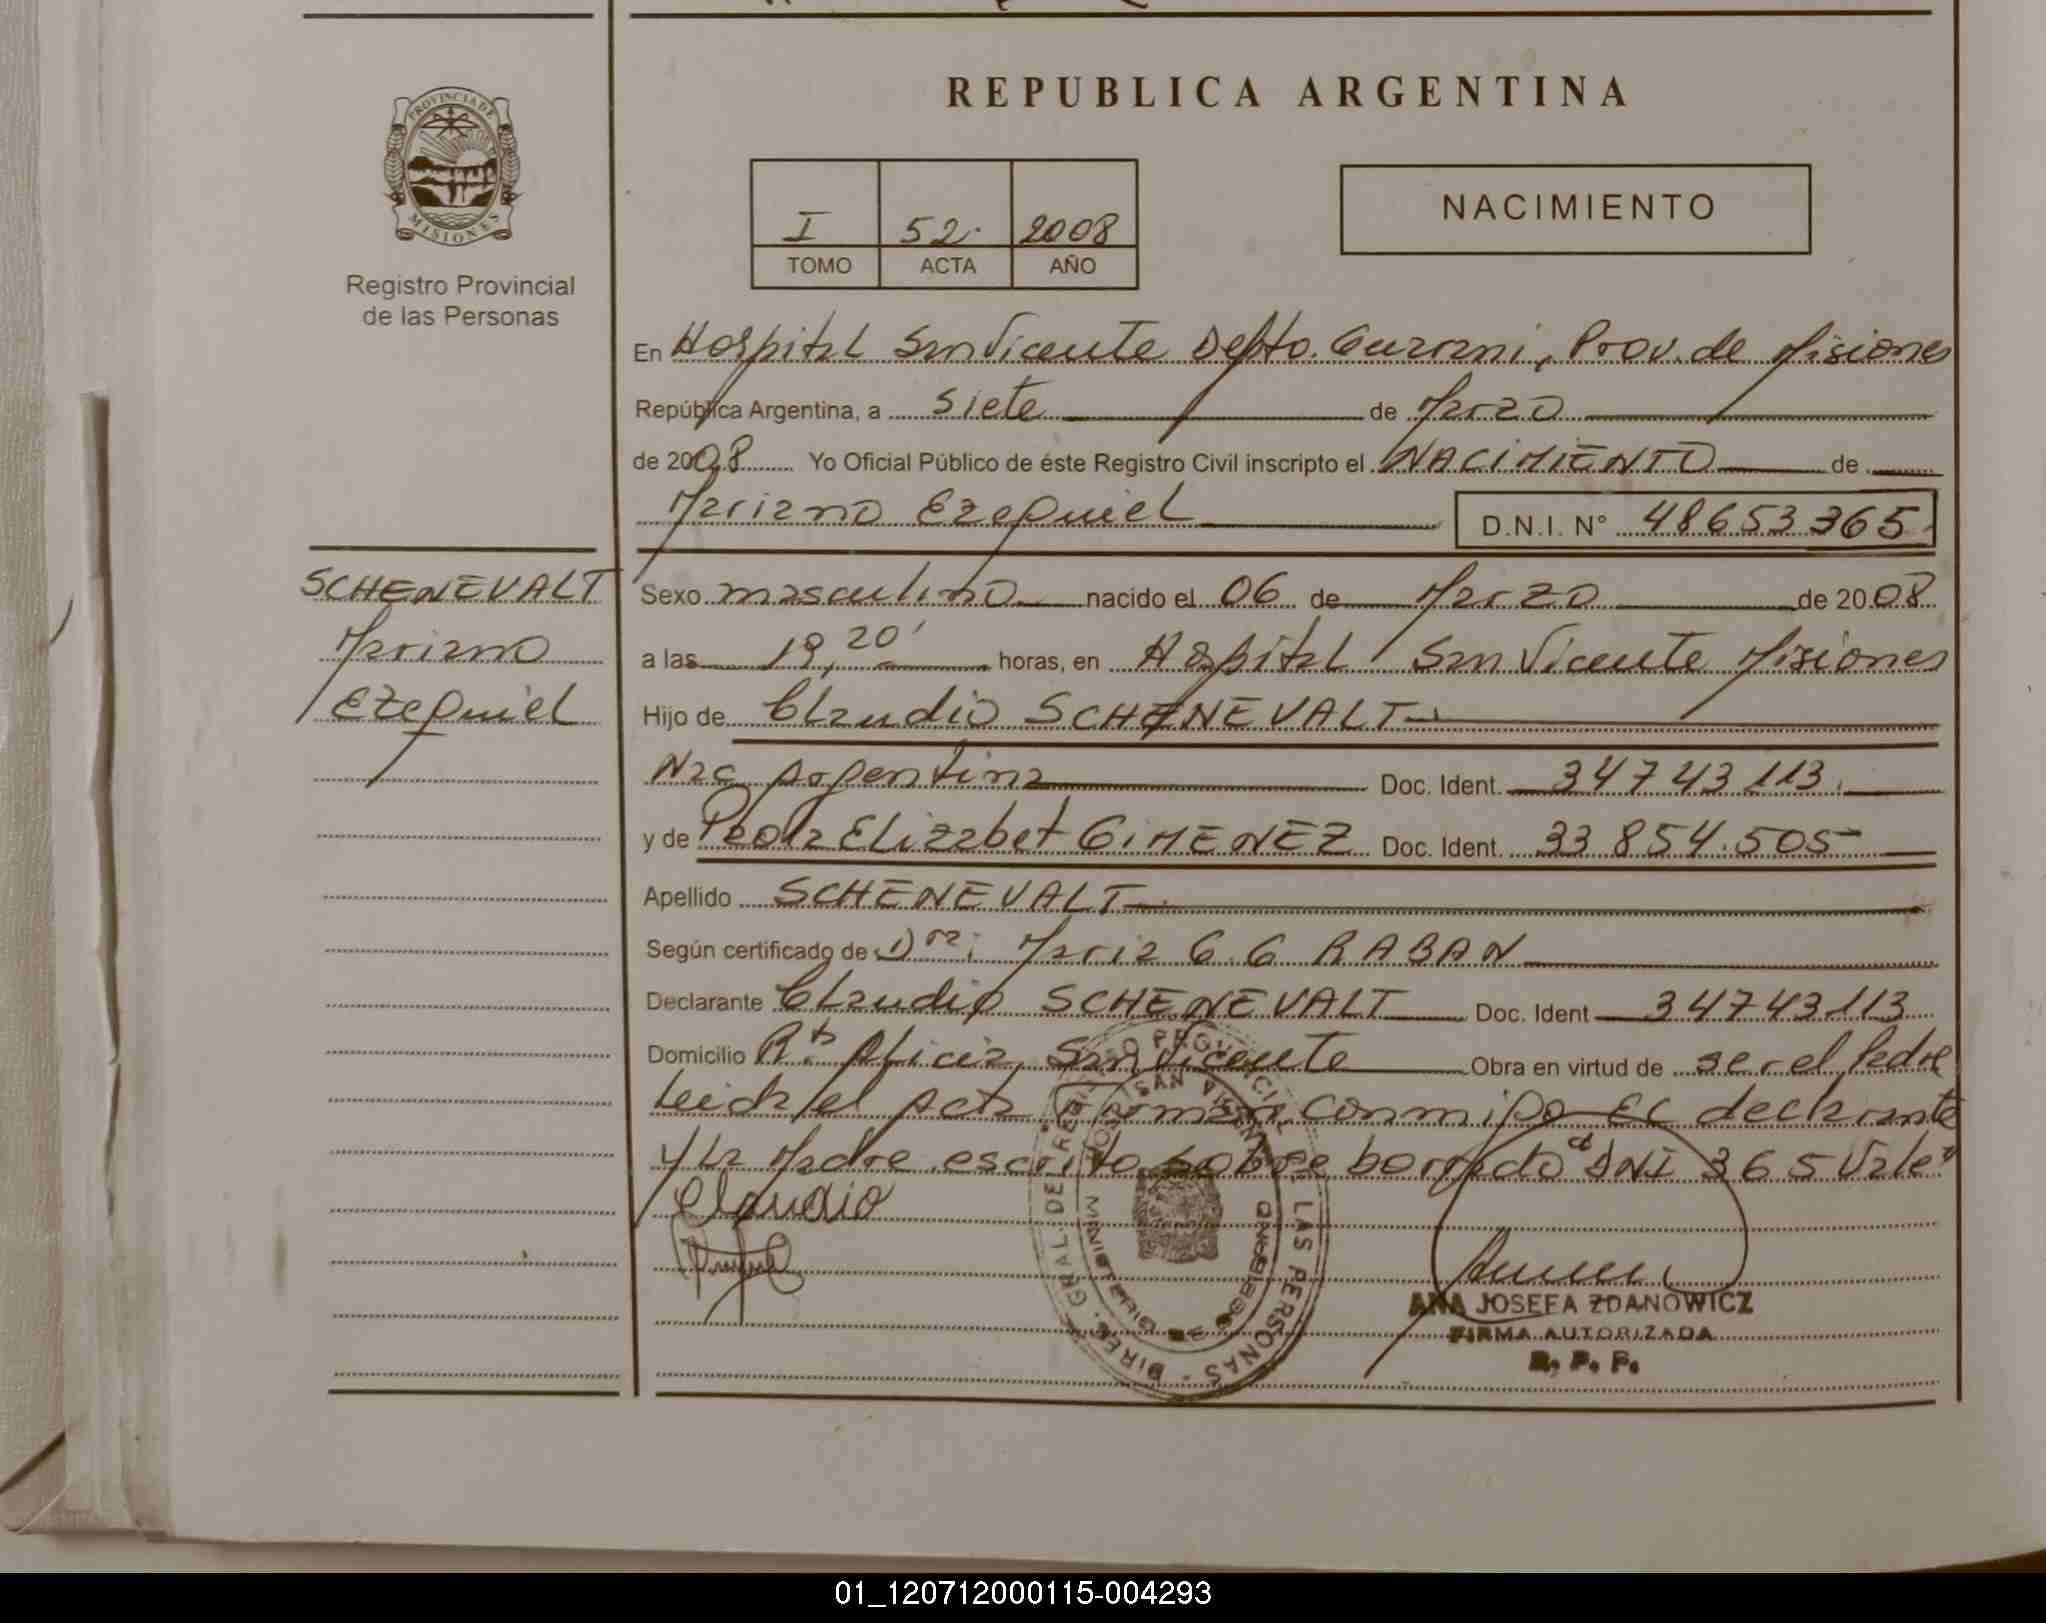 REPUBLICA ARGENTINA
PROVINCIA DE
MISIONES
Registro Provincial
de las Personas
NACIMIENTO
I 52. 2008
TOMO ACTA AÑO
En Hospital San Vicente Depto. Guarani, Prov. de Misiones
República Argentina, a siete de Marzo
de 2008 Yo Oficial Público de éste Registro Civil inscripto el NACIMIENTO de
Mariano Ezequiel D.N.I. N° 48653365
SCHENEVALT
Mariano
Ezequiel
Sexo masculino nacido el 06 de Marzo de 2008
a las 19,20' horas, en Hospital San Vicente Misiones
Hijo de Claudio SCHENEVALT
Nac Argentina Doc. Ident. 34743113.
y de Elizabet GIMENEZ Doc. Ident. 33854.505
Apellido SCHENEVALT
Según certificado de Dra: Maria G. G RABAN
Declarante Claudio SCHENEVALT Doc. Ident 34743113
Domicilio Alicia, San Vicente Obra en virtud de ser el Padre
Leida el Acta Firman conmigo El declarante
y la Madre escrito sobre borrado DNI 365 Vale
Claudio
DIREC. GRAL. DE REGISTRO PROVINCIAL DE LAS PERSONAS
SAN VICENTE
MINISTERIO DE GOBIERNO
ANA JOSEFA ZDANOWICZ
FIRMA AUTORIZADA
R. P. P.
01_120712000115-004293